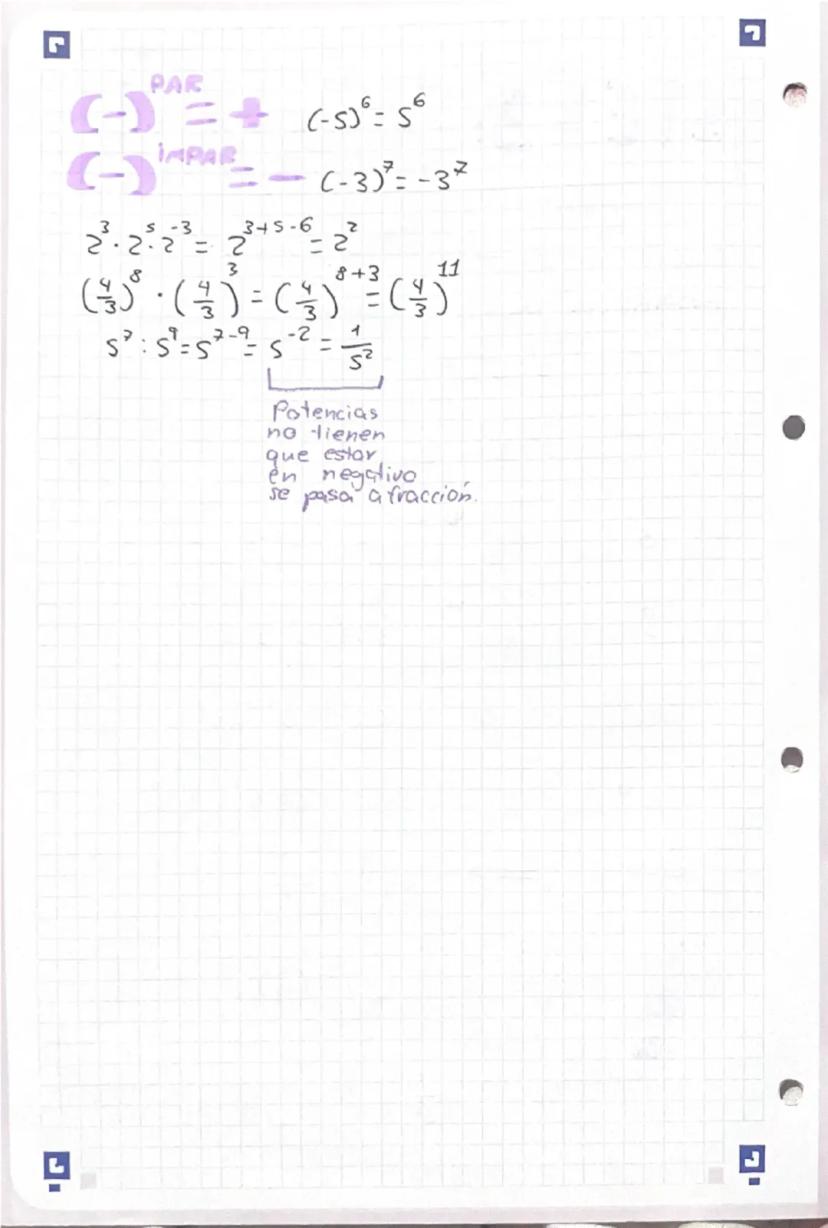 (-)^PAR = + (-5)^6 = 5^6
(-)^iMPAR = - (-3)^7 = -3^7
2^3 · 2^5 · 2^-3 = 2^3+5-6 = 2^2
(4/3)^8 · (4/3)^3 = (4/3)^8+3 = (4/3)^11
5^7 : 5^9 = 5^7-9 = 5^-2 = 1/5^2
Potencias
no tienen
que estar
en negativo
se pasa a fracción.